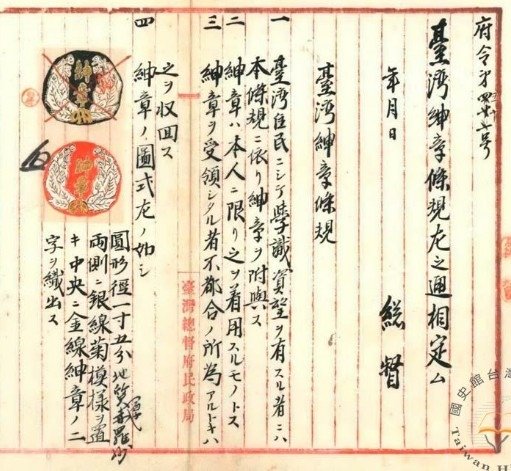 府令第四十七号
臺灣紳章條規左之通相定ム
年月日
総督
臺灣紳章條規
一 臺灣住民ニシテ學識資望ヲ有スル者ニハ
本條規ニ依リ紳章ヲ附與ス
二 紳章ハ本人ニ限リ之ヲ着用スルモノトス
三 紳章ヲ受領シタル者不都合ノ所為アルトキハ
臺灣總督府民政局
之ヲ収回ス
四 紳章ノ圖式左ノ如シ
圓形徑一寸五分地質羅紗
両側ニ銀線菊模様置
キ中央ニ金線紳章ノ二
字ヲ織出ス
紳章
紳章
國史館台灣
Taiwan H